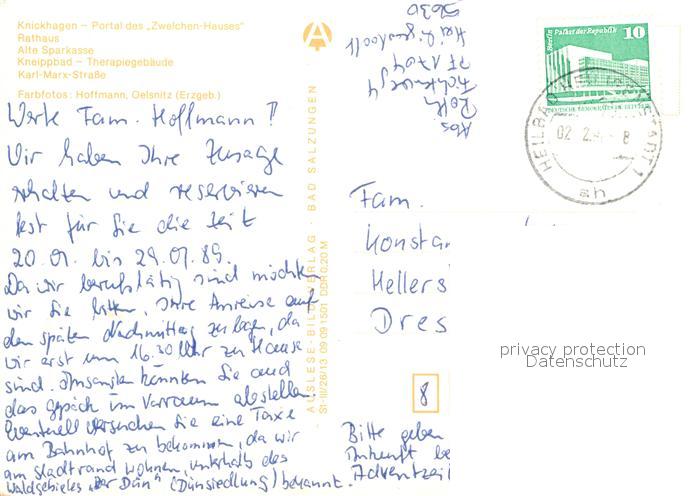 Knickhagen – Portal des „Zwelchen-Hauses“
Rathaus
Alte Sparkasse
Kneippbad – Therapiegebäude
Karl-Marx-Straße
Farbfotos: Hoffmann, Oelsnitz (Erzgeb.)
Werte Fam. Hoffmann!
Wir haben Ihre Zusage
erhalten und reservieren
fest für Sie die Zeit
20.01. bis 29.01.89.
Da wir berufstätig sind möchten
wir Sie bitten, Ihre Anreise auf
den späten Nachmittag zu legen, da
wir erst um 16.30 Uhr zu Hause
sind. Ansonsten könnten Sie auch
das Gepäck im Vorraum abstellen.
Eventuell versuchen Sie eine Taxe
am Bahnhof zu bekommen, da wir
am Stadtrand wohnen, unterhalb des
Waldgebietes „Der Dün“ (Dünsiedlung) bekannt.
AUSLESE-BILD-VERLAG · BAD SALZUNGEN
St-III/26/13 09 09 1501 DDR 0,20 M
Abs
Roth
5630
Berlin Palast der Republik
10
HEILBAD HEILIGENSTADT 1
02.2. 8
ah
Fam.
Konstan
Hellers
Dres
8
Bitte geben
Ankunft be
Adventzei
privacy protection
Datenschutz